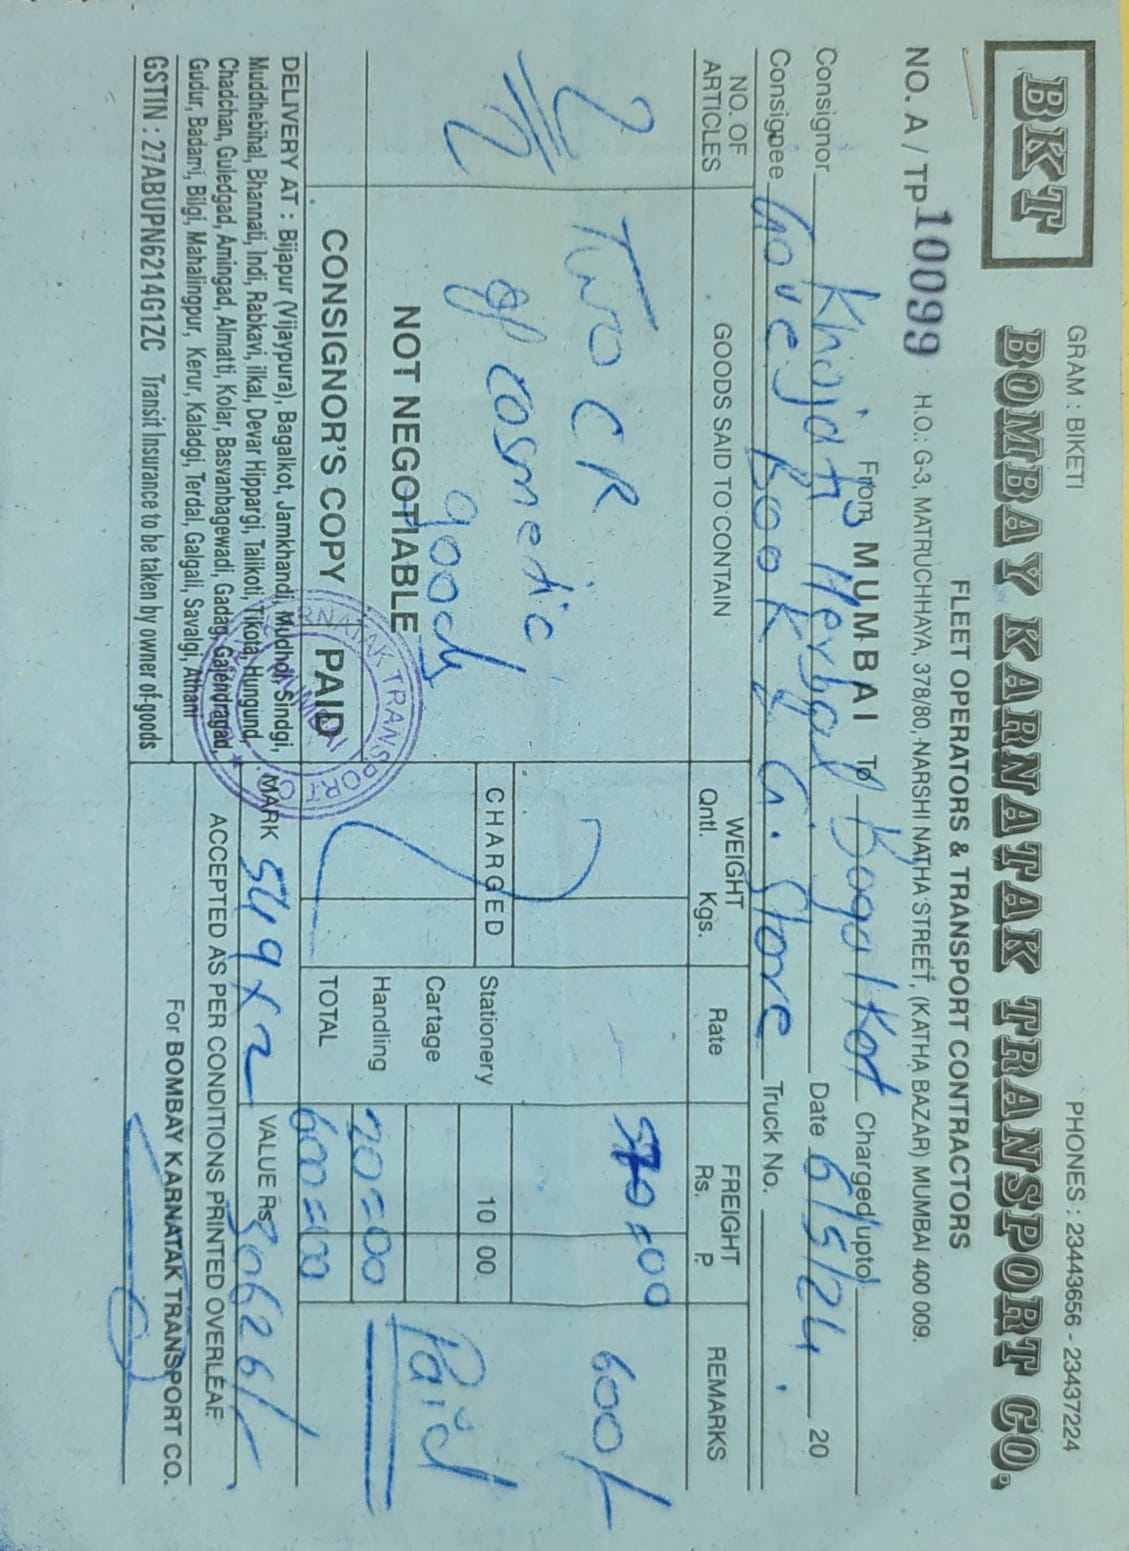 GRAM : BIKETI
PHONES : 23443656 - 23437224
BKT
BOMBAY KARNATAK TRANSPORT CO.
FLEET OPERATORS & TRANSPORT CONTRACTORS
H.O.: G-3, MATRUCHHAYA, 378/80, NARSHI NATHA STREET, (KATHA BAZAR) MUMBAI 400 009.
NO. A / TP 10099
From MUMBAI To Bagalkot Charged upto
Consignor Khojati Herbal Date 6/5/24 20
Consignee Gove Book & G. Store Truck No.
NO. OF ARTICLES
GOODS SAID TO CONTAIN
WEIGHT
Qntl. Kgs.
Rate
FREIGHT
Rs. P.
REMARKS
2
Two CR
of cosmetic
goods
570=00
600/-
CHARGED
Stationery 10 00
Cartage
Handling 20=00
TOTAL 600=00
Paid
NOT NEGOTIABLE
CONSIGNOR'S COPY PAID
DELIVERY AT : Bijapur (Vijaypura), Bagalkot, Jamkhandi, Mudhol, Sindgi,
Muddhebihal, Bhannati, Indi, Rabkavi, ilkal, Devar Hippargi, Talikoti, Tikota, Hungund,
Chadchan, Guledgad, Amingad, Almatti, Kolar, Basvanbagewadi, Gadag, Gajendragad,
Gudur, Badami, Bilgi, Mahalingpur, Kerur, Kaladgi, Terdal, Galgali, Savalgi, Athani
GSTIN : 27ABUPN6214G1ZC Transit Insurance to be taken by owner of goods
MARK 549 x 2
VALUE Rs. 30626/-
ACCEPTED AS PER CONDITIONS PRINTED OVERLEAF.
For BOMBAY KARNATAK TRANSPORT CO.